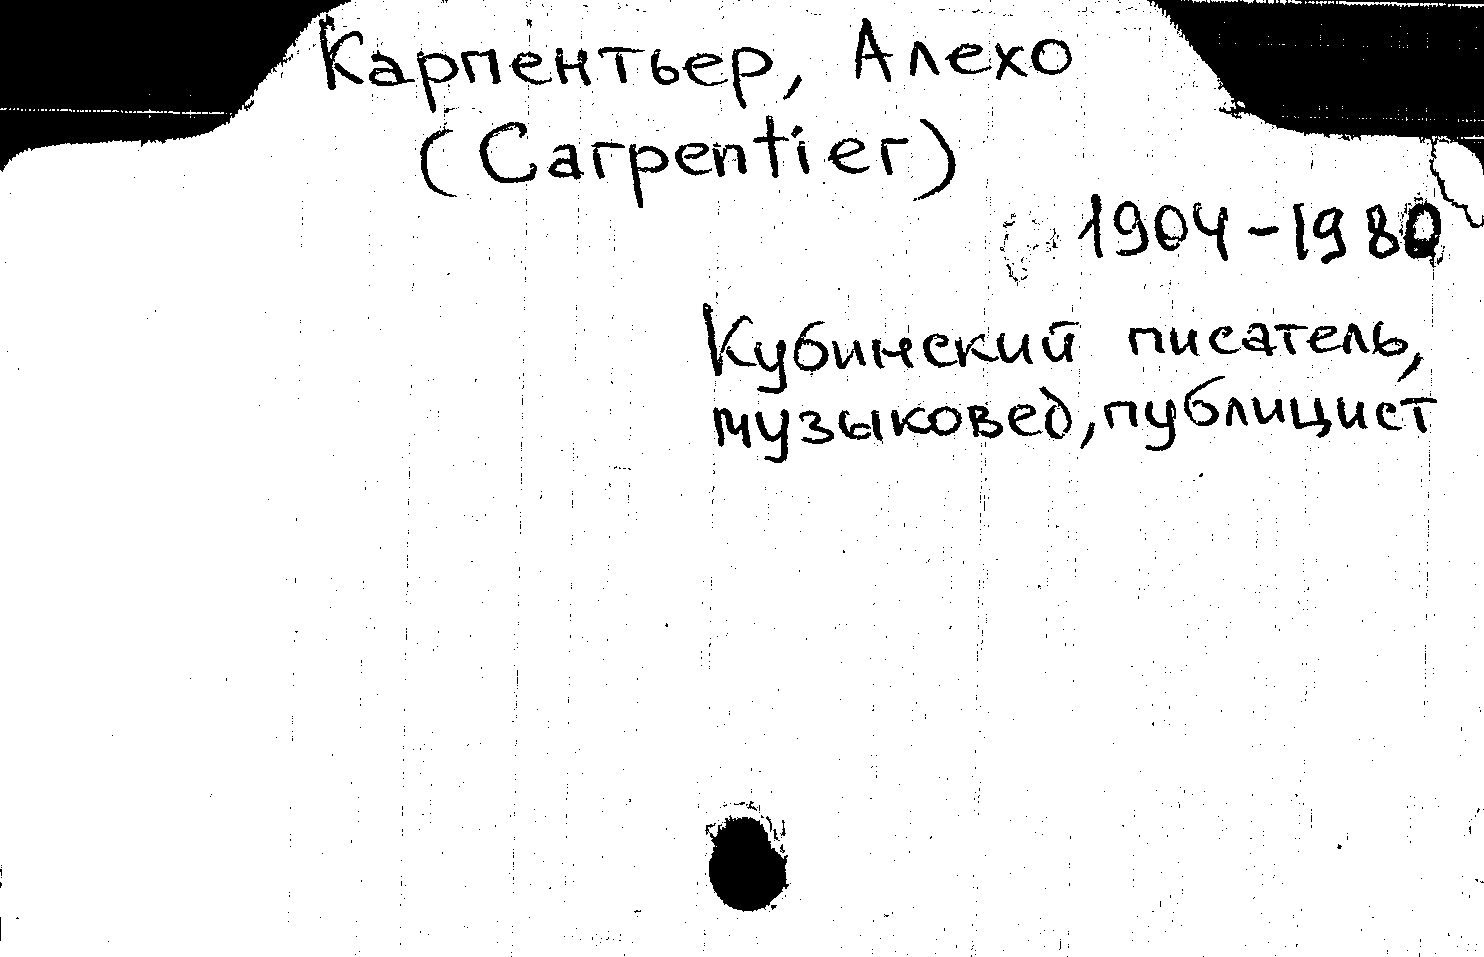 Карпентьер, Алехо
(Carpentier)
1904-1980
Кубинский писатель,
музыковед, публицист